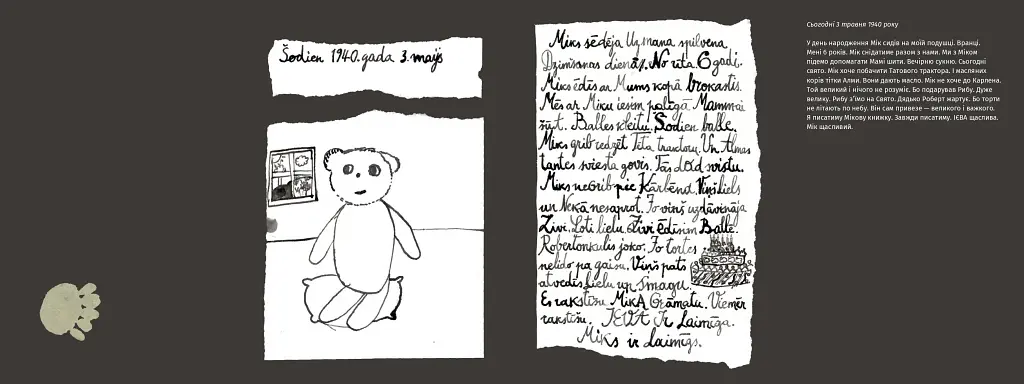 Šodien 1940.gada 3.maijs
Miks sēdēja Uz mana spilvena
Dzimšanas dienā. No rīta. 6 gadi.
Miks ēdīs ar Mums kopā brokastis.
Mēs ar Miku iesim palīgā Mammai
šūt. Balles kleitu. Šodien balle.
Miks grib redzēt Tēta traktoru. Un Almas
tantes sviesta govis. Tās dod sviestu.
Miks negrib pie Kārbēna. Viņš liels
un Nekā nesaprot. Jo viņš uzdāvināja
Zivi. Ļoti lielu. Zivi ēdīsim Ballē.
Robertonkulis joko. Jo tortes
nelido pa gaisu. Viņš pats
atvedīs lielu un Smagu.
Es rakstīšu MikA Grāmatu. Vienmēr
rakstīšu. IEVA Ir Laimīga.
Miks ir Laimīgs.
Сьогодні 3 травня 1940 року
У день народження Мік сидів на моїй подушці. Вранці.
Мені 6 років. Мік снідатиме разом з нами. Ми з Міком
підемо допомагати Мамі шити. Вечірню сукню. Сьогодні
свято. Мік хоче побачити Татового трактора. І масляних
корів тітки Алми. Вони дають масло. Мік не хоче до Карпена.
Той великий і нічого не розуміє. Бо подарував Рибу. Дуже
велику. Рибу з’їмо на Свято. Дядько Роберт жартує. Бо торти
не літають по небу. Він сам привезе — великого і важкого.
Я писатиму Мікову книжку. Завжди писатиму. ІЄВА щаслива.
Мік щасливий.